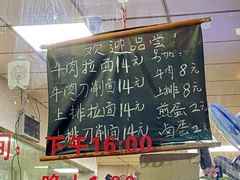 欢迎品尝!
牛肉拉面14元
牛肉刀削面14元
上排拉面14元
上排刀削面14元
另加:
牛肉8元
上排8元
煎蛋2元
卤蛋2元
间: 下午16:00